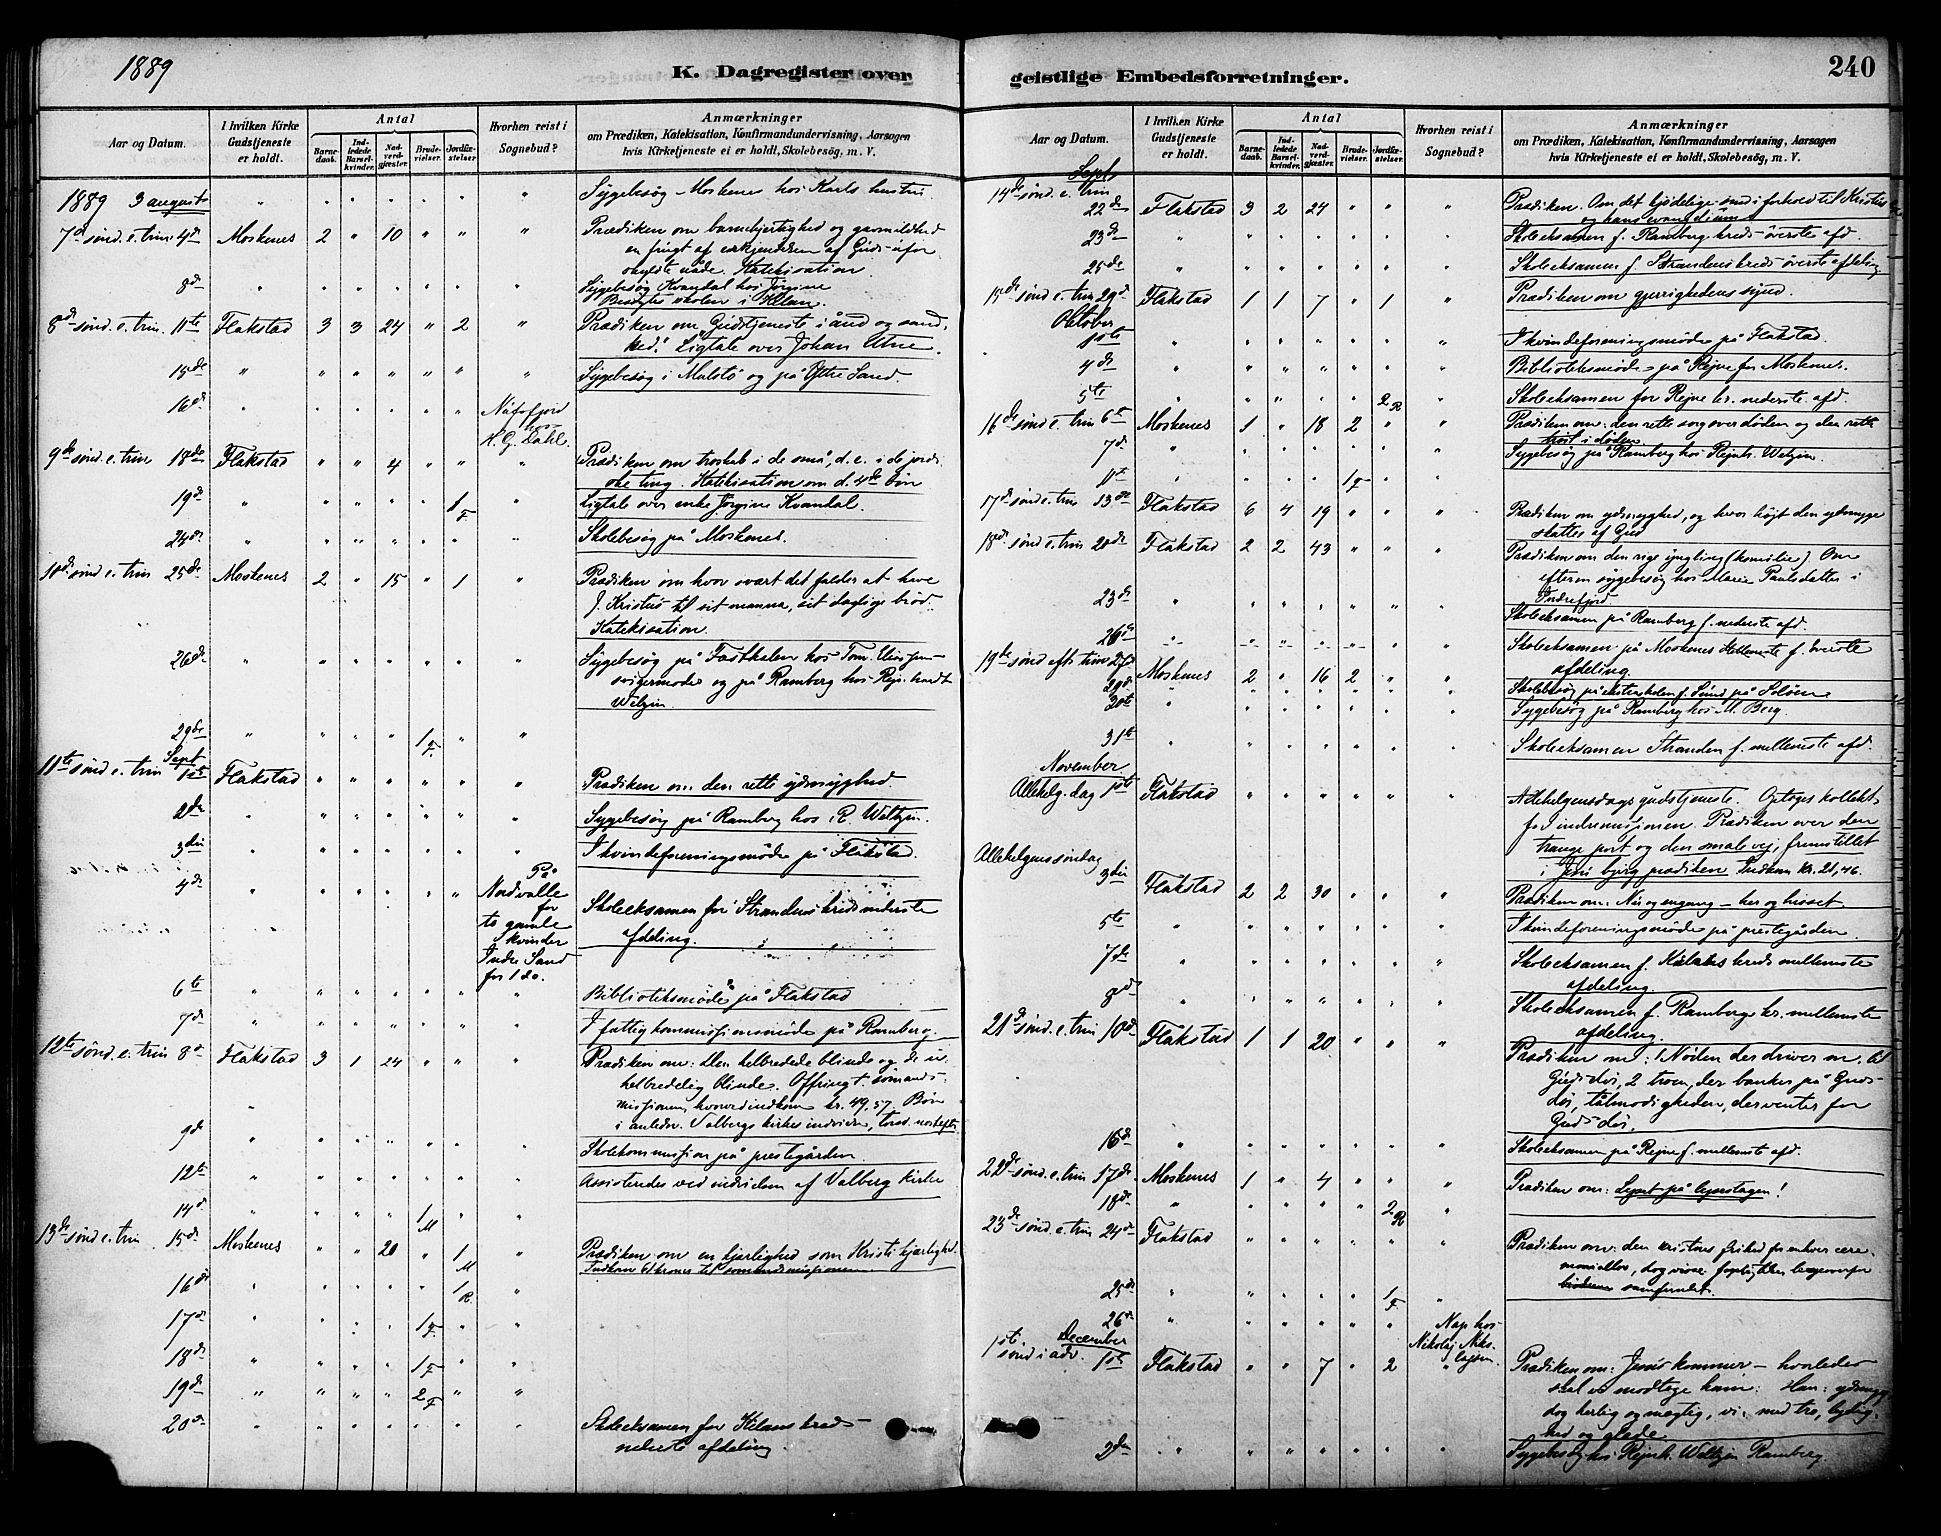 1889
K. Dagregister over
Aar og Datum.
I hvilken Kirke Gudstjeneste er holdt.
Antal
Barnedaab.
Indledede Barselkvinder.
Nadverdgjæster.
Brudevielser.
Jordfæstelser.
Hvorhen reist i Sognebud?
Anmærkninger
om Prædiken, Katekisation, Konfirmandundervisning, Aarsagen
hvis Kirketjeneste ei er holdt, Skolebesög, m. V.
1889 3 august " " " " " " " Sygebesøg Moskenes hos Karls hustru
7de sønd. e. trin 4de Moskenes 2 " 10 " " " Prædiken om barmhjertighed og gavmildhed
en frugt af erkjendelsen af Guds ufor
skyldte nåde. Katekisation.
8de " " " " " " " Sygebesøg Kvandal hos Jørgine
Besøgtes skolen i Kilan.
8de sønd. e. trin. 11te Flakstad 3 3 24 " 2 " Prædiken om Gudstjeneste i ånd og sand-
hed. Ligtale over Johan Utne.
15de " " " " " " " Sygebesøg i Mulstø og på Ytre Sand.
16de " " " " " " Nåfsfjord
hos
K. G. Dahl.
9de sønd. e. trin 18de Flakstad " " 4 " " " Prædiken om troskab i de små, d. e. i de jordi
ske ting. Katekisation om d. 4de bøn
19de " " " " " 1 F " Ligtale over enke Jørgine Kvandal.
24de " " " " " " " Skolebesøg på Moskenes.
10de sønd e. trin 25de Moskenes 2 " 15 " 1 " Prædiken om hvor svært det falder at have
J. Kristus til sit manna, sit daglige brød.
Katekisation.
26de " " " " " " " Sygebesøg på Fasthalen hos Tom.
svigermoder og på Ramberg hos Rejnhardt
Weltzin.
29de " " " " 1 F " "
Sept
11te sønd. e. trin 1ste Flakstad " " " " " " Prædiken om den rette ydmyghed.
2den " " " " " " " Sygebesøg på Ramberg hos R. Weltzin.
3die " " " " " " " I kvindeforeningsmøde på Flakstad.
4de " " " " " " På
Nordvalle
for
to gamle
kvinder
Indre Sand
for 1 do.
Skoleeksamen for Strandens kreds nederste
afdeling.
6te " " " " " " " Biblioteksmøde på Flakstad
7de " " " " " " " I fattigkommissionsmøde på Ramberg.
12te sønd. e. trin 8de Flakstad 3 1 24 " " " Prædiken om: Den helbredede blinde og de u-
helbredelig blinde. Offring t. sømands-
missionen, hvorved indkom kr. 49,57. Bøn
i anledn. Valbergs kirkes indvielse,
9de " " " " " " " Skolekommission på prestegården
12te " " " " " " " Assisteredes ved indvielsen af Valberg kirke
14de " " " " 1 M " "
13de sønd. e. trin 15de Moskenes " " 20 " 1 M " Prædiken om en kjærlighed som Kristi kjærlighed.
Indkom 61 kroner til sømandsmissionen.
16de " " " " " 1 R. "
17de " " " " 1 F " "
18de " " " " 1 F " "
19de " " " " 2 F " "
20de " " " " " " " Skoleeksamen for Kilans kreds
nederste afdeling.
geistlige Embedsforretninger.
240
Aar og Datum.
I hvilken Kirke Gudstjeneste er holdt.
Antal
Barnedaab.
Indledede Barselkvinder.
Nadverdgjæster.
Brudevielser.
Jordfæstelser.
Hvorhen reist i Sognebud?
Anmærkninger
om Prædiken, Katekisation, Konfirmandundervisning, Aarsagen
hvis Kirketjeneste ei er holdt, Skolebesög, m. V.
Sept
14de sønd. e. trin 22de Flakstad 3 2 24 " " " Prædiken. Om det kjødelige sind i forhold til Kristus
og hans evangelium
23de " " " " " " " Skoleeksamen f. Ramberg kreds øverste afd.
25de " " " " " " " Skoleeksamen f. Strandens kreds øverste afdeling
15de sønd. e. trin 29de Flakstad 1 1 7 " 1 " Prædiken om gjerrighedens synd.
Oktober
1ste " " " " " " " I kvindeforeningsmøde på Flakstad.
4de " " " " " " " Biblioteksmøde på Rejne for Moskenes.
5te " " " " " 2 R " Skoleeksamen for Rejne kr. nederste afd.
16de sønd. e. trin 6te Moskenes 1 " 18 2 " " Prædiken om: den rette sorg over døden og den rette
trøst i døden
7de " " " " " " " Sygebesøg på Ramberg hos Rejnh. Weltzin.
11te " " " " 1 F " "
17de sønd. e. trin 13de Flakstad 6 4 19 " " " Prædiken om ydmyghed, og hvor højt den ydmyge
skattes af Gud
18de sønd. e. trin 20de Flakstad 2 2 43 " " " Prædiken om den rige yngling (homilie). Om
efterm sygebesøg hos Marie Paulsdatter i
Indrefjord
23de " " " " " " " Skoleeksamen på Ramberg f. nederste afd.
26de " " " " " " " Skoleeksamen på Moskenes f. øverste
afdeling.
19de sønd efts trin 27de Moskenes 2 " 16 2 " "
29de " " " " " " " Skolebesøg på f. Sund på Solöen
30te " " " " " " " Sygebesøg på Ramberg hos M. Berg.
31te " " " " " " " Skoleeksamen Stranden f. mellemste afd.
November
Allehelg. dag 1ste Flakstad " " " " " " Allehelgensdags gudstjeneste. Optoges kollekt
for Indremissionen. Prædiken over den
trange port og den smale vej, fremstillet
i Jesu bjerg prædiken. Indkom kr. 21,46.
Allehelgenssøndag 3die Flakstad 2 2 30 " " " Prædiken om: Nu og engang – her og hisset.
5te " " " " " " " I kvindeforeningsmøde på prestegården.
7de " " " " " " " Skoleeksamen f. Kilans kreds mellemste
afdeling.
8de " " " " " " " Skoleeksamen f. Rambergs kr. mellemste
afdeling.
21de sønd. e. trin 10de Flakstad 1 1 20 " " " Prædiken om: 1 Nøden der driver os til
Guds dør, 2 troen, der banker på Guds-
dør, tålmodigheden, der venter for
Guds dør.
16de " " " " " " " Skoleeksamen på Rejne f. mellemste afd.
22de sønd. e. trin 17de Moskenes 1 " 4 " " " Prædiken om:
18de " " " " " 2 R "
23de sønd. e. trin 24de Flakstad " " " " " " Prædiken om: den kristnes frihed for enhver cere-
moniellov, dog visse forpligtelser
samfundet.
25de " " " " " 1 F "
26de " " " " " " Nap hos
Nikolaj Niko-
lajsen.
December
1ste sønd i adv. 1ste Flakstad " " 7 " 2 " Prædiken om: Jesus kommer – hvorledes
skal vi modtage ham: Han: ydmyg
dog herlig og mægtig, vi: med tro, lydig-
hed og glæde.
2den " " " " " " " Sygebesøg hos Rejnh. Weltzin Ramberg.